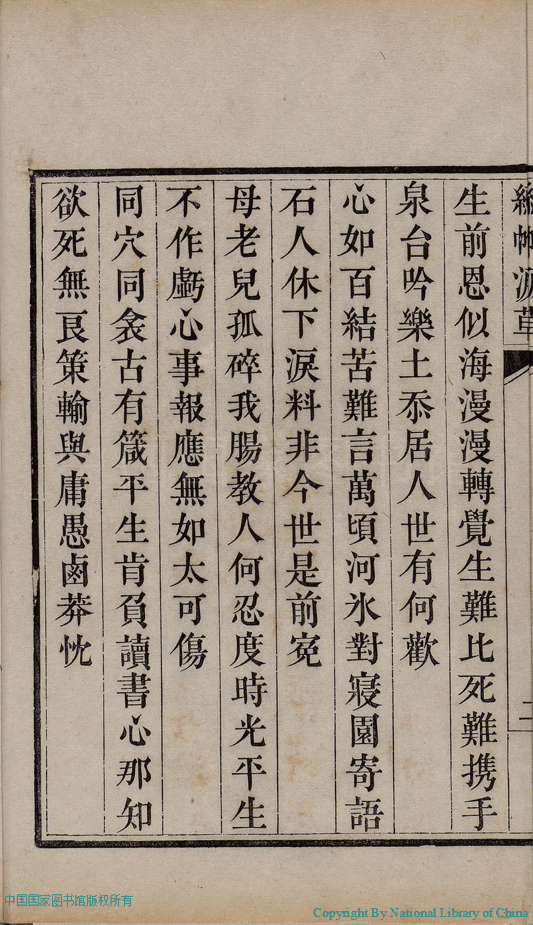 生前恩似海漫漫轉覺生難比死難携手
泉台吟樂土忝居人世有何歡
心如百結苦難言萬頃河氷對寢園寄語
石人休下淚料非今世是前寃
母老兒孤碎我腸教人何忍度時光平生
不作虧心事報應無如太可傷
同穴同衾古有箴平生肯負讀書心那知
欲死無良策輸與庸愚鹵莽忱
二
中国国家图书馆版权所有
Copyright By National Library of China